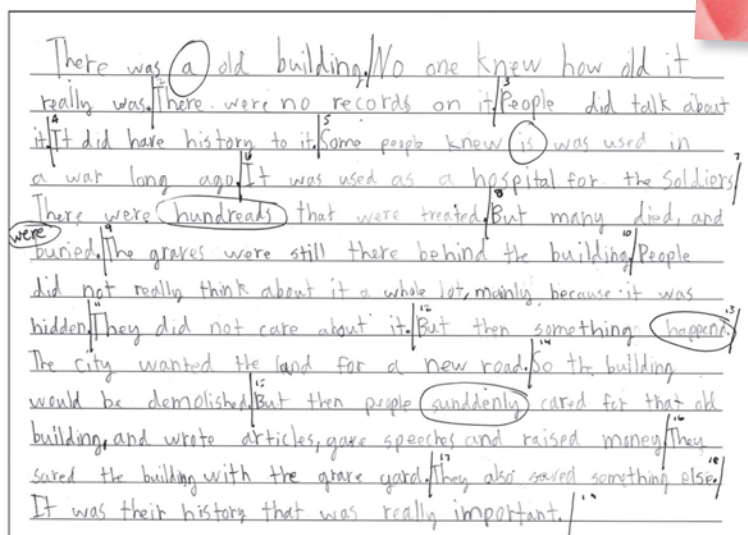 There was a old building. No one knew how old it
2 3
really was. There were no records on it. People did talk about
4 5
it. It did have history to it. Some people knew is was used in
6 7
a war long ago. It was used as a hospital for the soldiers
8
There were hundreads that were treated. But many died, and
were 9 10
buried. The graves were still there behind the building. People
did not really think about it a whole lot, mainly because it was
11 12 13
hidden. They did not care about it. But then something happend.
14
The city wanted the land for a new road. So the building
15
would be demolished. But then people sunddenly cared for that old
16
building, and wrote articles, gave speeches and raised money. They
17 18
saved the building with the grave yard. They also saved something else.
It was their history that was really important.